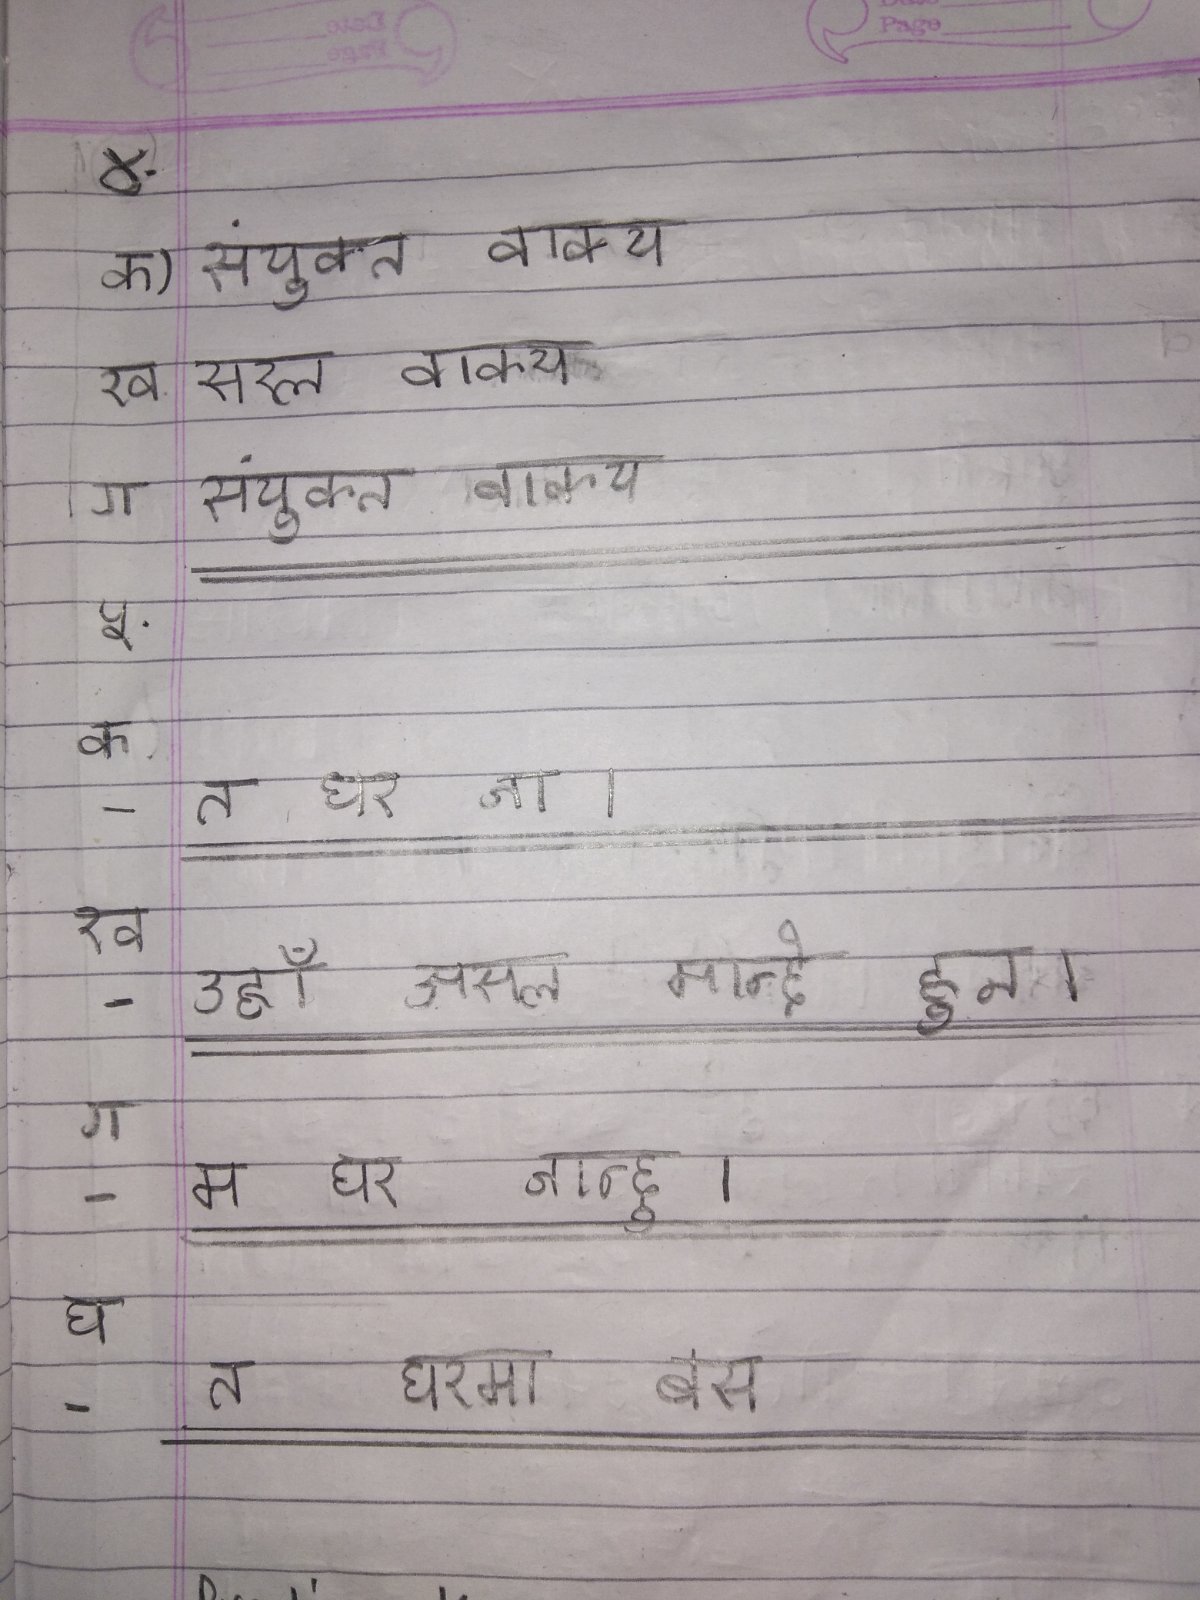 Page
४.
क) संयुक्त वाक्य
ख. सरल वाक्य
ग संयुक्त वाक्य
५.
क
- त घर जा ।
ख
- उहाँ असल मान्छे हुन ।
ग
- म घर जान्छु ।
घ
- त घरमा बस